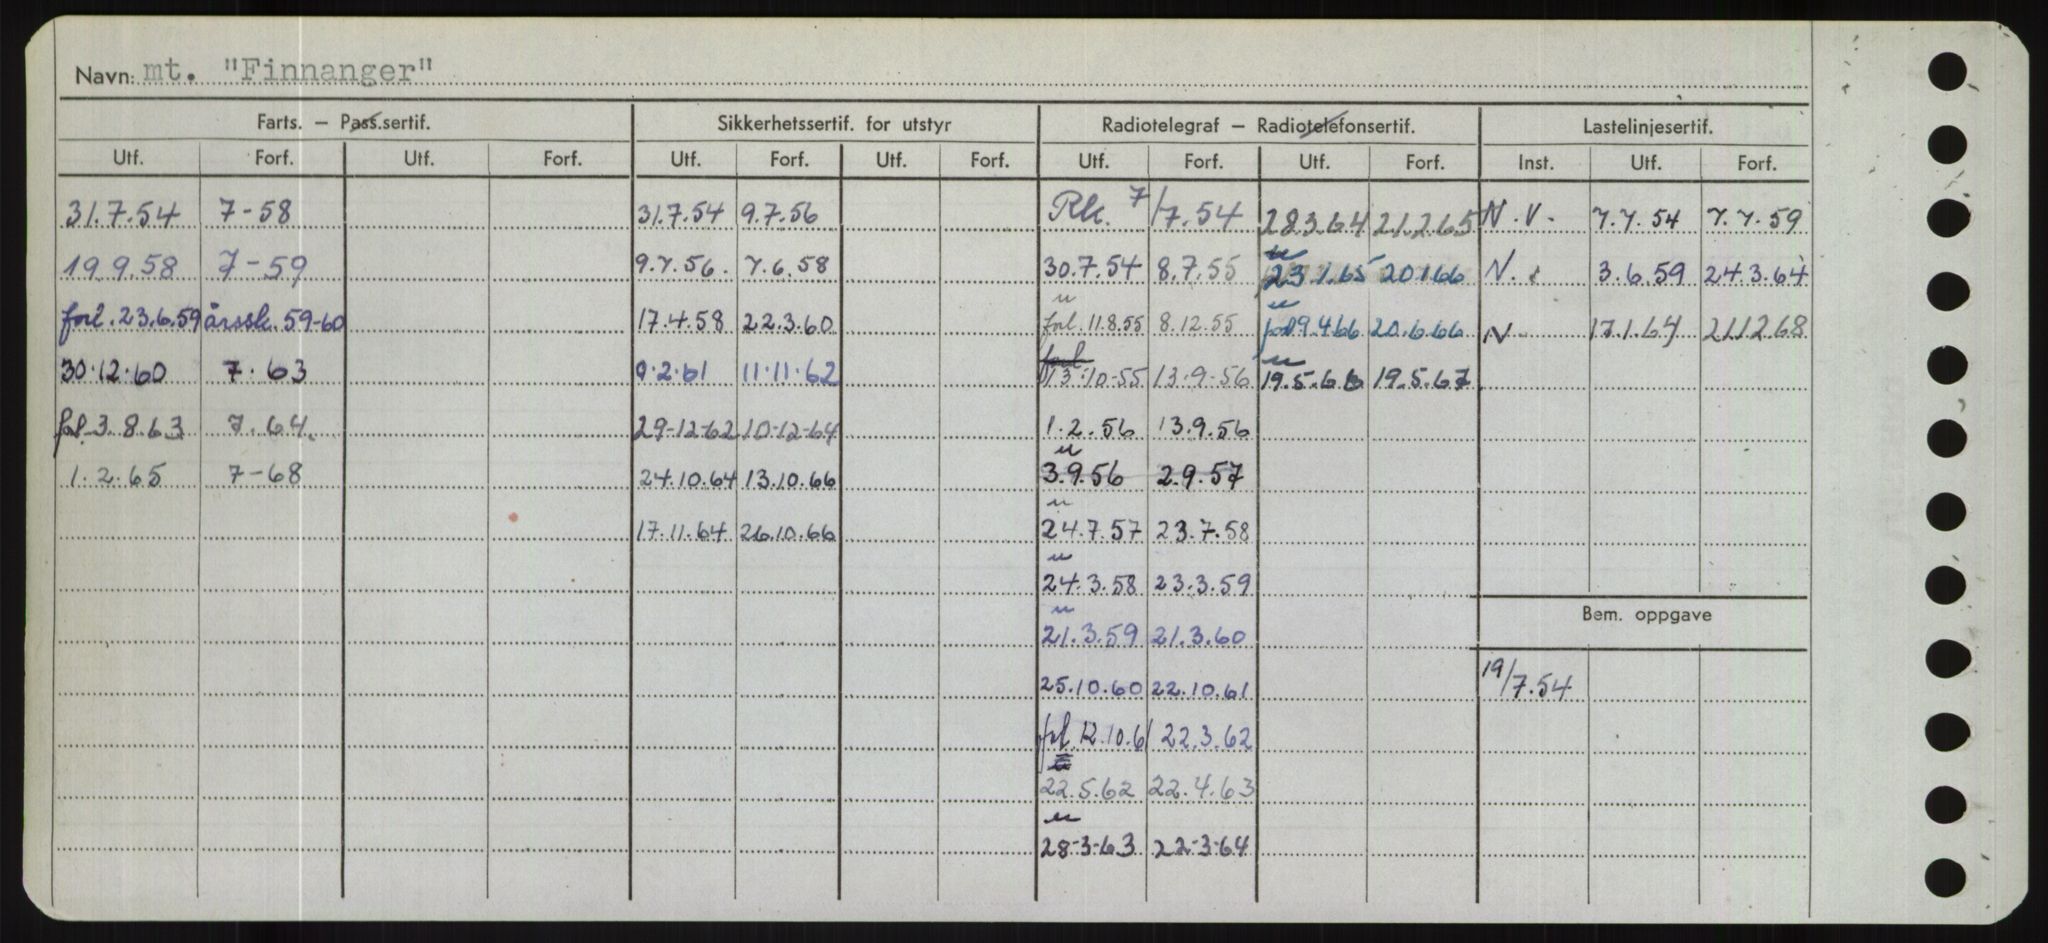 Navn: mt. "Finnanger"
Farts. — Pass.sertif. Sikkerhetssertif. for utstyr Radiotelegraf — Radiotelefonsertif. Lastelinjesertif.
Utf. Forf. Utf. Forf. Utf. Forf. Utf. Forf. Utf. Forf. Utf. Forf. Inst. Utf. Forf.
31.7.54 7-58 31.7.54 9.7.56 Rk. 7/7.54 28.3.64 21.2.65 N.V. 7.7.54 7.7.59
19.9.58 7-59 9.7.56. 7.6.58 30.7.54 8.7.55 u 23.1.65 20.1.66 N. 3.6.59 24.3.64
forl. 23.6.59 årssk. 59-60 17.4.58 22.3.60 u forl. 11.8.55 8.12.55 u forl 9.4.66 20.6.66 N 17.1.64 21.12.68
30.12.60 7.63 9.2.61 11.11.62 forl 13.10-55 13.9-56 u 19.5.66 19.5.67
forl. 3.8.63 7.64. 29-12-62 10-12-64 1.2.56 13.9.56
1.2.65 7-68 24.10.64 13.10.66 u 3.9.56 2.9.57
17.11.64 26.10.66 u 24.7.57 23.7.58
u 24.3.58 23.3.59
Bem. oppgave
u 21.3.59 21.3.60
25.10.60 22.10.61 19/7.54
forl. 12.10.61 22.3.62
22.5.62 22.4.63
u 28-3-63 22-3-64